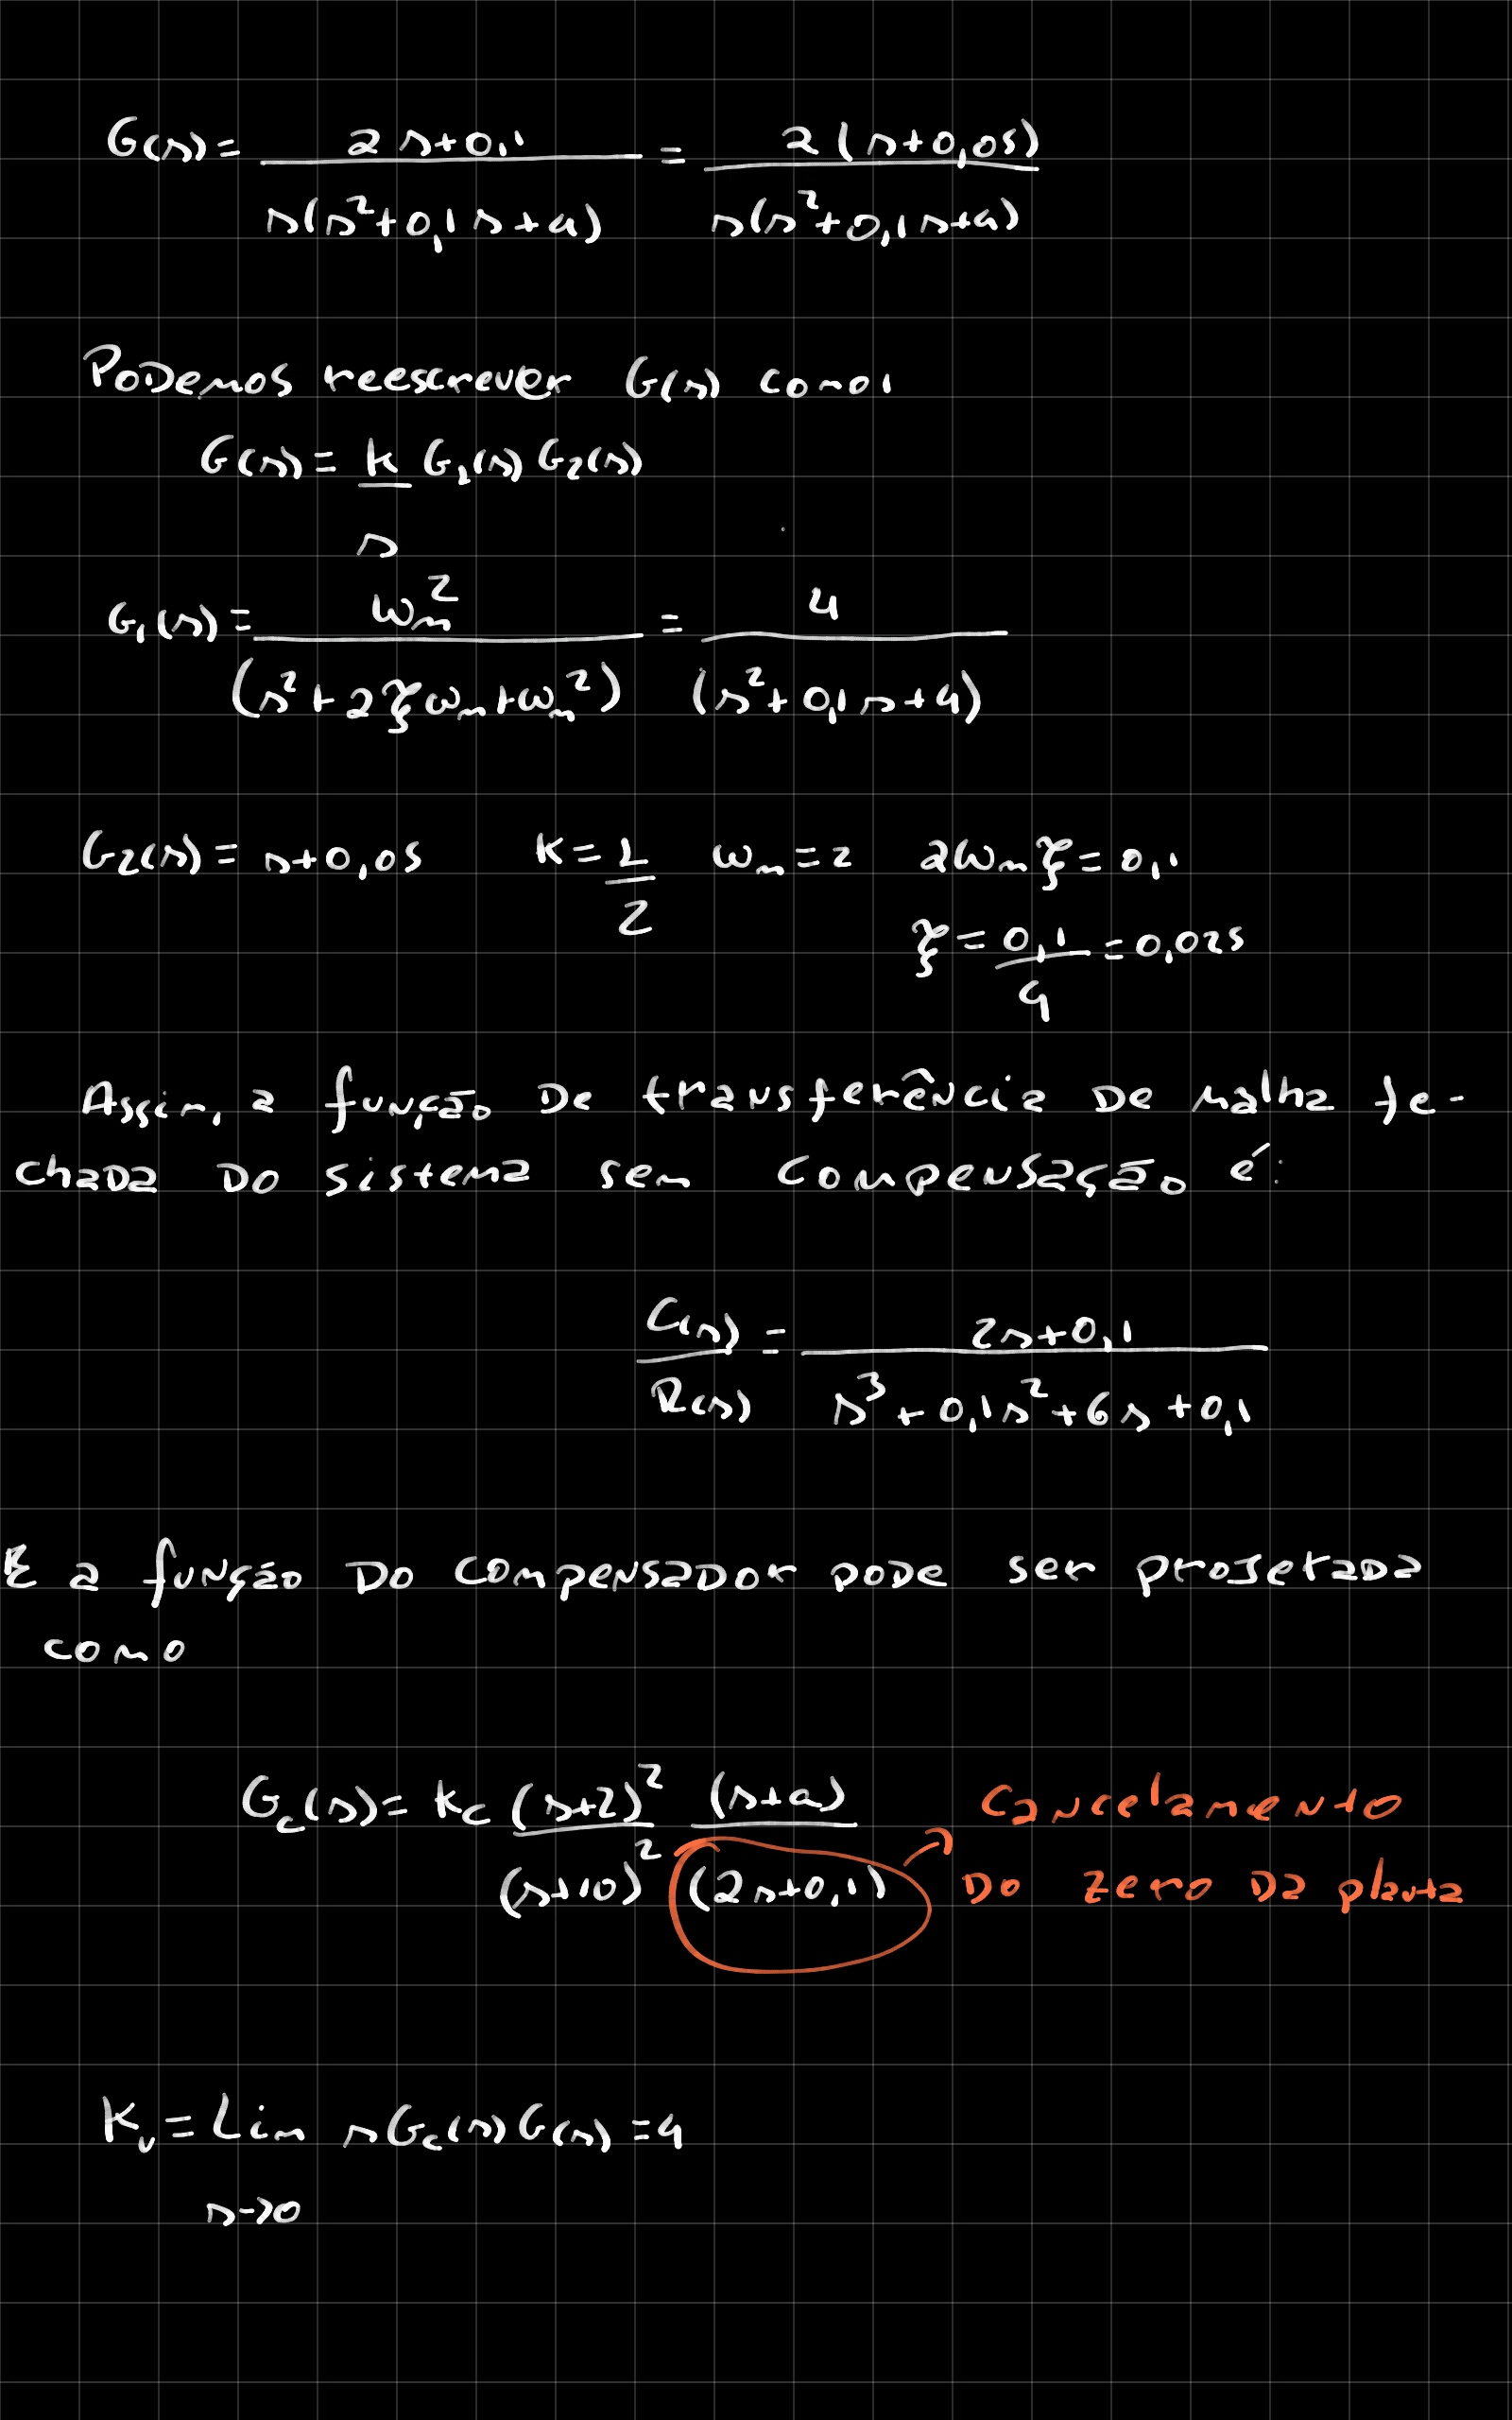 G(s) = 2s+0,1 / s(s²+0,1s+4) = 2(s+0,05) / s(s²+0,1s+4)
Podemos reescrever G(s) como:
G(s) = k/s G₁(s) G₂(s)
G₁(s) = ωn² / (s²+2ξωn+ωn²) = 4 / (s²+0,1s+4)
G₂(s) = s+0,05 k = 1/2 ωn = 2 2ωnξ = 0,1
ξ = 0,1/4 = 0,025
Assim, a função de transferência de malha fe-
chada do sistema sem compensação é:
C(s)/R(s) = 2s+0,1 / s³+0,1s²+6s+0,1
E a função do compensador pode ser projetada
como
Gc(s) = kc (s+2)²/(s+10)² (s+a)/(2s+0,1) Cancelamento
do zero da planta
Kv = Lim sGc(s)G(s) = 4
s→0